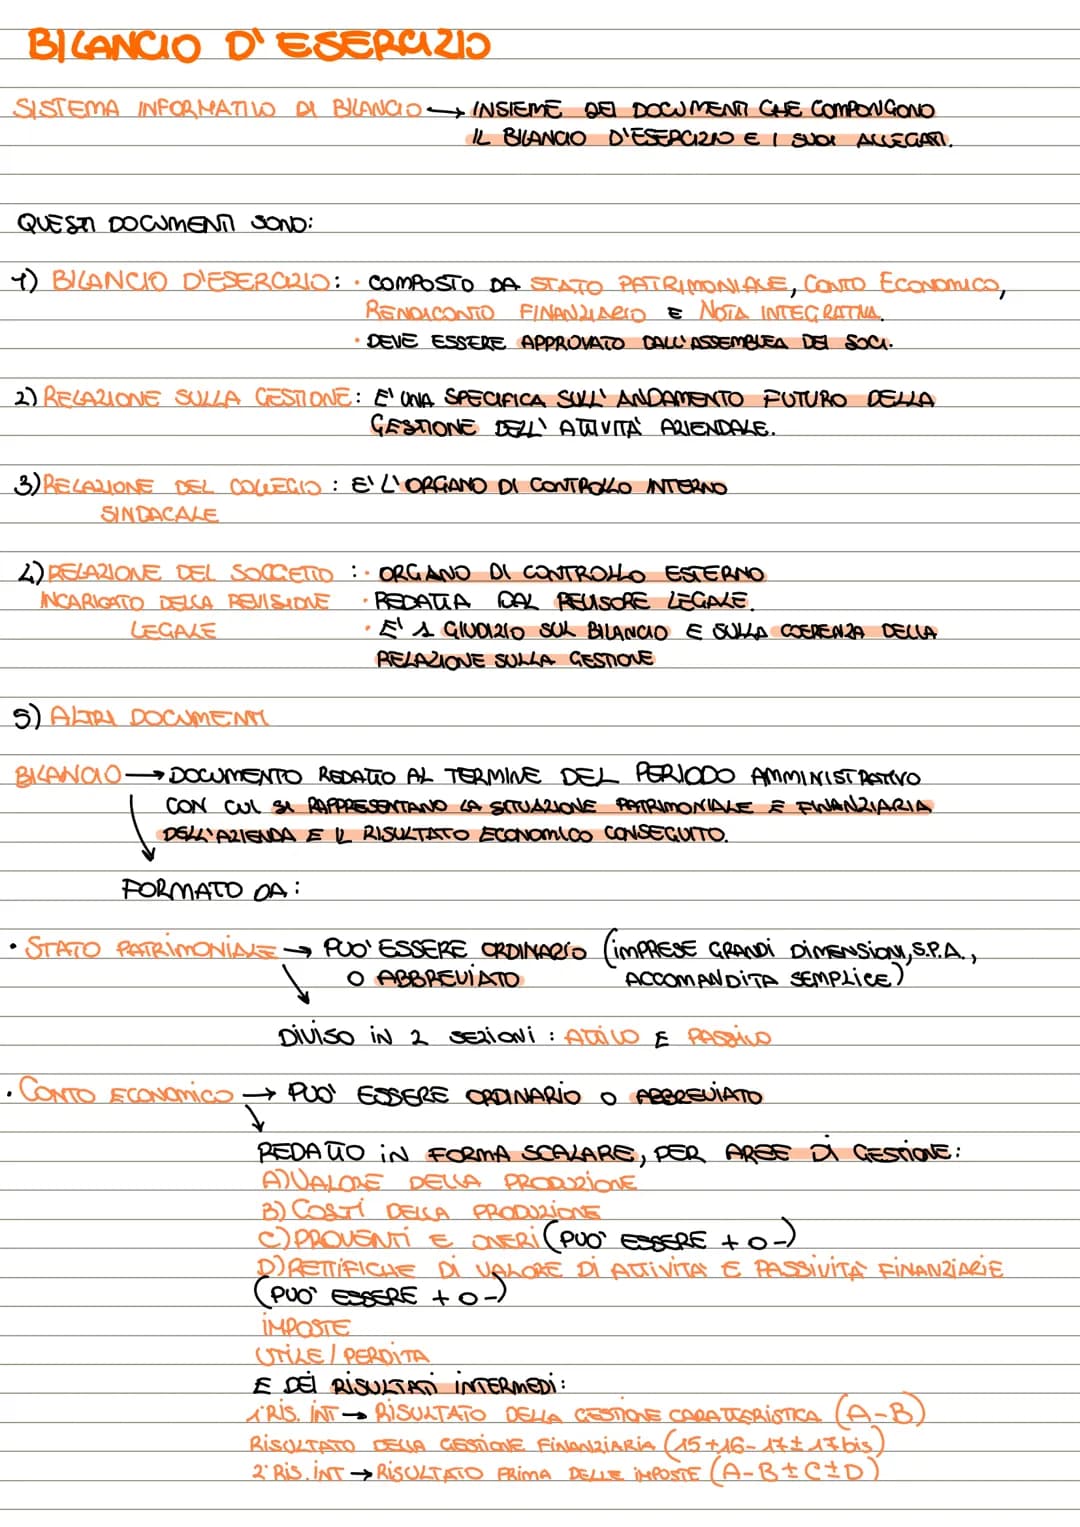 BILANCIO D'ESERCIZIO
SISTEMA INFORMATIVO DI BILANCIO → INSIEME DEI DOCUMENTI CHE COMPONGONO
IL BILANCIO D'ESERCIZIO E I SUOI ALLEGATI.
QUESTI DOCUMENTI SONO:
1) BILANCIO D'ESERCIZIO: • COMPOSTO DA STATO PATRIMONIALE, CONTO ECONOMICO,
RENDICONTO FINANZIARIO E NOTA INTEGRATIVA.
• DEVE ESSERE APPROVATO DALL'ASSEMBLEA DEI SOCI.
2) RELAZIONE SULLA GESTIONE: E' UNA SPECIFICA SULL'ANDAMENTO FUTURO DELLA
GESTIONE DELL'ATTIVITÀ AZIENDALE.
3) RELAZIONE DEL COLLEGIO : E' L'ORGANO DI CONTROLLO INTERNO
SINDACALE
4) RELAZIONE DEL SOGGETTO : • ORGANO DI CONTROLLO ESTERNO
INCARIGATO DELLA REVISIONE • REDATTA DAL REVISORE LEGALE.
LEGALE • E' 1 GIUDIZIO SUL BILANCIO E SULLA COERENZA DELLA
RELAZIONE SULLA GESTIONE
5) ALTRI DOCUMENTI
BILANCIO → DOCUMENTO REDATTO AL TERMINE DEL PERIODO AMMINISTRATIVO
CON CUI SI RAPPRESENTANO LA SITUAZIONE PATRIMONIALE E FINANZIARIA
DELL'AZIENDA E IL RISULTATO ECONOMICO CONSEGUITO.
FORMATO DA:
• STATO PATRIMONIALE → PUO' ESSERE ORDINARIO (IMPRESE GRANDI DIMENSIONI, S.P.A.,
O ABBREVIATO ACCOMANDITA SEMPLICE)
DIVISO IN 2 SEZIONI : ATTIVO E PASSIVO
• CONTO ECONOMICO → PUO' ESSERE ORDINARIO O ABBREVIATO
REDATTO IN FORMA SCALARE, PER AREE DI GESTIONE:
A) VALORE DELLA PRODUZIONE
B) COSTI DELLA PRODUZIONE
C) PROVENTI E ONERI (PUO' ESSERE + O -)
D) RETTIFICHE DI VALORE DI ATTIVITÀ E PASSIVITÀ FINANZIARIE
(PUO' ESSERE + O -)
IMPOSTE
UTILE / PERDITA
E DEI RISULTATI INTERMEDI:
1° RIS. INT → RISULTATO DELLA GESTIONE CARATTERISTICA (A-B)
RISULTATO DELLA GESTIONE FINANZIARIA (15+16-17±17bis)
2° RIS. INT → RISULTATO PRIMA DELLE IMPOSTE (A-B±C±D)